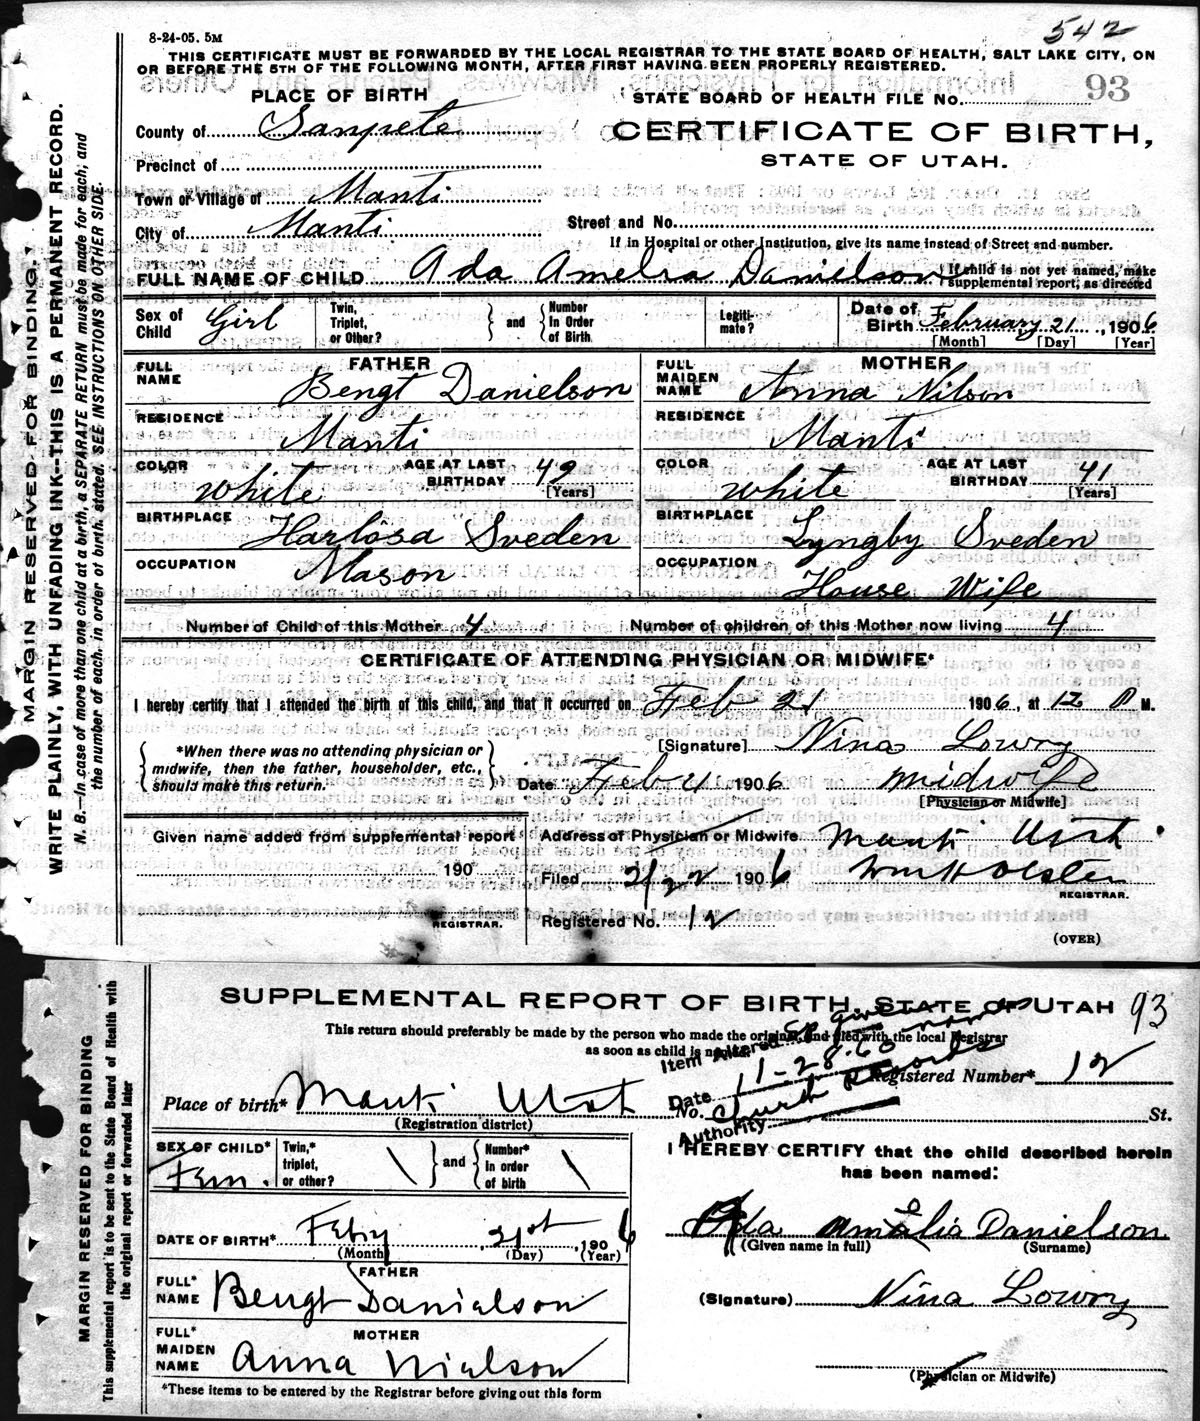 542
8-24-05. 5M
THIS CERTIFICATE MUST BE FORWARDED BY THE LOCAL REGISTRAR TO THE STATE BOARD OF HEALTH, SALT LAKE CITY, ON
OR BEFORE THE 5TH OF THE FOLLOWING MONTH, AFTER FIRST HAVING BEEN PROPERLY REGISTERED.
PLACE OF BIRTH
STATE BOARD OF HEALTH FILE No. 93
County of Sanpete
CERTIFICATE OF BIRTH,
STATE OF UTAH.
Precinct of
Town or Village of Manti
City of Manti
Street and No.
If in Hospital or other Institution, give its name instead of Street and number.
FULL NAME OF CHILD Ada Amelia Danielson { If child is not yet named, make
supplemental report, as directed
Sex of Child Girl
Twin, Triplet, or Other? } and { Number In Order of Birth
Legiti- mate?
Date of Birth February 21, 1906
[Month] [Day] [Year]
FATHER
MOTHER
FULL NAME Bengt Danielson
FULL MAIDEN NAME Anna Nilson
RESIDENCE Manti
RESIDENCE Manti
COLOR White AGE AT LAST BIRTHDAY 49 [Years]
COLOR White AGE AT LAST BIRTHDAY 41 [Years]
BIRTHPLACE Harlösa Sveden
BIRTHPLACE Lyngby Sveden
OCCUPATION Mason
OCCUPATION House Wife
Number of Child of this Mother 4
Number of children of this Mother now living 4
CERTIFICATE OF ATTENDING PHYSICIAN OR MIDWIFE*
I hereby certify that I attended the birth of this child, and that it occurred on Feb 21 1906, at 12 P M.
{ *When there was no attending physician or
midwife, then the father, householder, etc.,
should make this return. }
[Signature] Nina Lowry
Date Feb 21 1906 Midwife
[Physician or Midwife]
Given name added from supplemental report
190
REGISTRAR.
Address of Physician or Midwife Manti Utah
Filed 2/22 1906 Wm H Olsten
REGISTRAR.
Registered No. 12
(OVER)
MARGIN RESERVED FOR BINDING.
WRITE PLAINLY, WITH UNFADING INK--THIS IS A PERMANENT RECORD.
N. B.--In case of more than one child at a birth, a SEPARATE RETURN must be made for each; and
the number of each, in order of birth, stated. SEE INSTRUCTIONS ON OTHER SIDE.
SUPPLEMENTAL REPORT OF BIRTH, STATE OF UTAH 93
This return should preferably be made by the person who made the original, and filed with the local Registrar
as soon as child is named.
Item Altered given name
Date 11-28-60
Authority Church Records
Registered Number* 12
Place of birth* Manti Utah No. St.
(Registration district)
SEX OF CHILD* Fem.
Twin,* triplet, or other? \ } and { Number* in order of birth \
I HEREBY CERTIFY that the child described herein
has been named:
DATE OF BIRTH* Feby 21st, 1906
(Month) (Day) (Year)
Ada Amelia Danielson
(Given name in full) (Surname)
FATHER
FULL* NAME Bengt Danielson
(Signature) Nina Lowry
MOTHER
FULL* MAIDEN NAME Anna Nielson
(Physician or Midwife)
*These items to be entered by the Registrar before giving out this form
MARGIN RESERVED FOR BINDING
This supplemental report is to be sent to the State Board of Health with
the original report or forwarded later